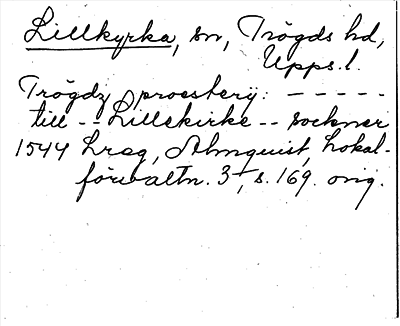 Lillkyrka, sn, Trögds hd,
Upps. l.
Trögdz proestery: - - - - -
till - - Lillekirke - - sockner
1544 Lreg, Almquist, Lokal-
förvaltn. 3, s. 169. orig.